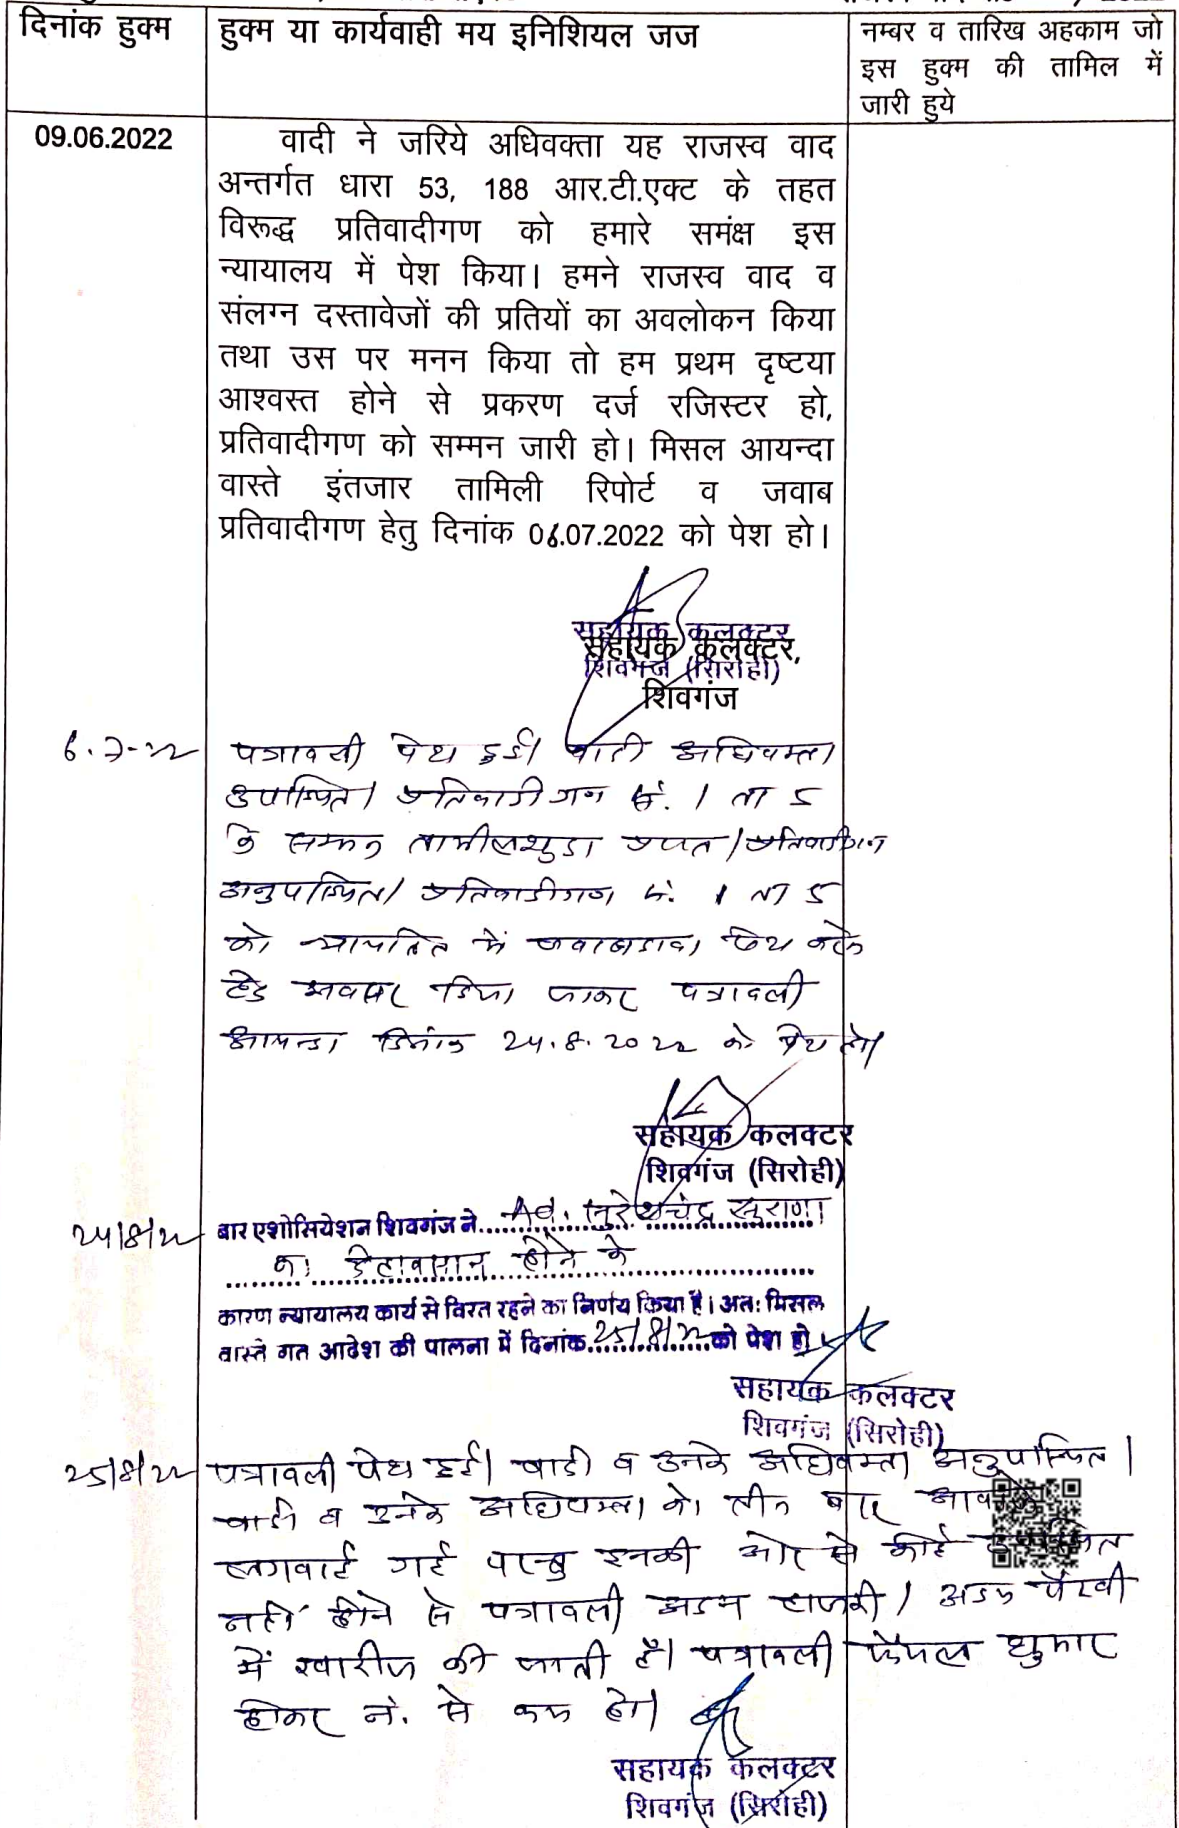 दिनांक हुक्म
हुक्म या कार्यवाही मय इनिशियल जज
नम्बर व तारिख अहकाम जो
इस हुक्म की तामिल में
जारी हुये
09.06.2022
वादी ने जरिये अधिवक्ता यह राजस्व वाद
अन्तर्गत धारा 53, 188 आर.टी.एक्ट के तहत
विरूद्ध प्रतिवादीगण को हमारे समंक्ष इस
न्यायालय में पेश किया। हमने राजस्व वाद व
संलग्न दस्तावेजों की प्रतियों का अवलोकन किया
तथा उस पर मनन किया तो हम प्रथम दृष्टया
आश्वस्त होने से प्रकरण दर्ज रजिस्टर हो,
प्रतिवादीगण को सम्मन जारी हो। मिसल आयन्दा
वास्ते इंतजार तामिली रिपोर्ट व जवाब
प्रतिवादीगण हेतु दिनांक 06.07.2022 को पेश हो।
सहायक कलक्टर
सहायक कलक्टर,
शिवगंज (सिरोही)
शिवगंज
6.7.22
पत्रावली पेश हुई। वादी अधिवक्ता
उपस्थित। प्रतिवादीगण सं. 1 ता 5
के सम्मन तामीलशुदा प्राप्त। प्रतिवादीगण
अनुपस्थित। प्रतिवादीगण सं. 1 ता 5
को न्यायहित में जवाबदावा पेश करने
हेतु अवसर दिया जाकर पत्रावली
आयन्दा दिनांक 24.8.2022 को पेश हो।
सहायक कलक्टर
शिवगंज (सिरोही)
24/8/22
बार एशोसियेशन शिवगंज ने Ad. सुरेशचंद्र सुराणा
का देहावसान होने के
कारण न्यायालय कार्य से विरत रहने का निर्णय किया है। अतः मिसल
वास्ते गत आदेश की पालना में दिनांक 25/8/22 को पेश हो
सहायक कलक्टर
शिवगंज (सिरोही)
25/8/22
पत्रावली पेश हुई। वादी व उनके अधिवक्ता अनुपस्थित।
वादी व उनके अधिवक्ता को तीन बार
लगवाई गई परन्तु इनकी ओर से कोई
नहीं होने से पत्रावली अदम हाजरी / अदम पैरवी
में खारीज की जाती है। पत्रावली फैसल शुमार
होकर नं. से कम हो।
सहायक कलक्टर
शिवगंज (सिरोही)